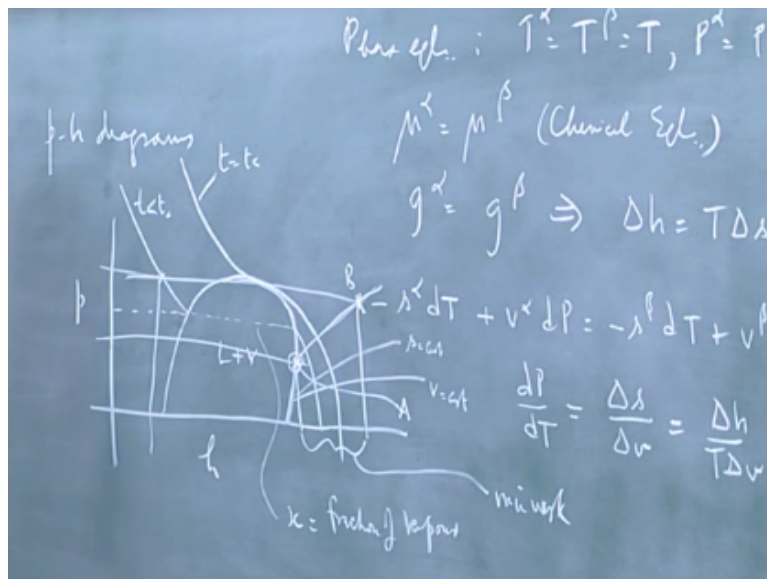 Phase eqlb.. : T^α = T^β = T, P^α = P
μ^α = μ^β (Chemical Eql..)
g^α = g^β ⇒ Δh = TΔs
-s^α dT + v^α dP = -s^β dT + v^β
dP/dT = Δs/Δv = Δh/TΔv
p-h diagrams
t=tc
t<tc
B
p
L+V
s=cst
v=cst
A
h
min work
x = fraction of vapour